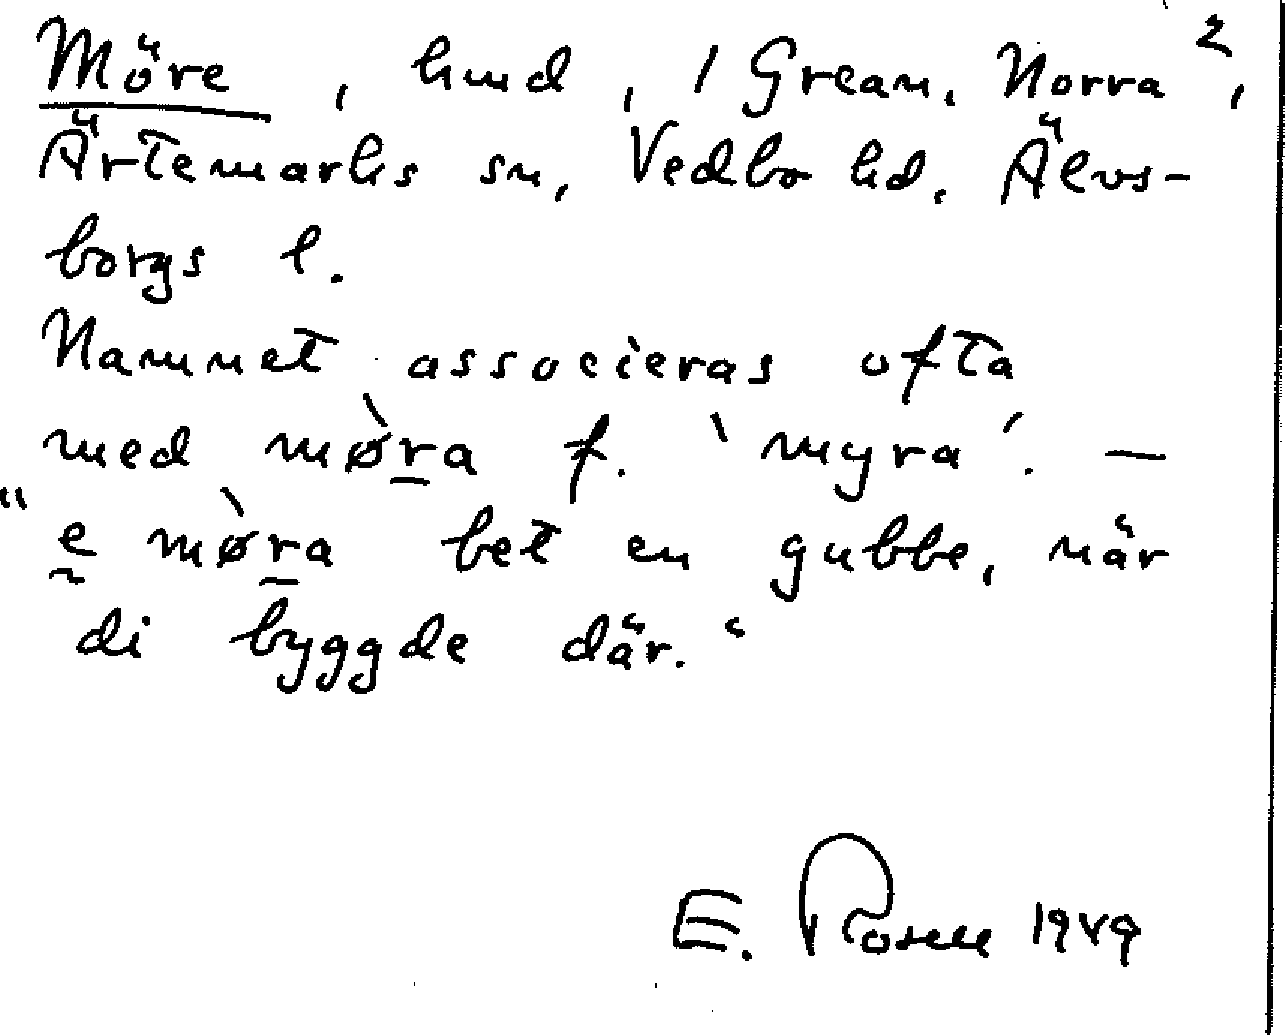 Möre, hmd, 1 Grean, Norra²,
Ärtemarks sn, Vedbo hd, Älvs-
borgs l.
Namnet associeras ofta
med mø̀ra f. `myra´. —
"e mø̀ra bet en gubbe, när
di byggde där."
E. Rosell 1949